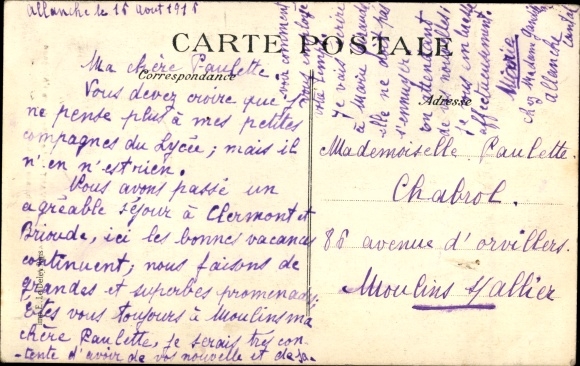 Allanche le 15 août 1915
CARTE POSTALE
Correspondance
Adresse
Ma chère Paulette.
Vous devez croire que je
ne pense plus à mes petites
compagnes du Lycée; mais il
n'en n'est rien.
Nous avons passé un
agréable séjour à Clermont et
Brioude, ici les bonnes vacances
continuent; nous faisons de
grandes et superbes promenades;
Êtes vous toujours à Moulins ma
chère Paulette, je serais très con-
-tente d'avoir de vos nouvelle et de sa-
voir comment
vous employez
vos
Je vais écrire
à Marie
elle ne doit pas
s'ennuyer
En attendant
de vos nouvelles
je vous embrasse
affectueusement.
Maria
chez Madame
Allanche
Cantal
Mademoiselle Paulette.
Chabrol.
88 avenue d'orvillers.
Moulins s/allier